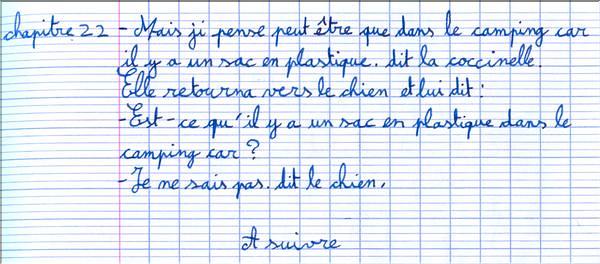 chapitre 22 - Mais ji pense peut être que dans le camping car
il y a un sac en plastique. dit la coccinelle.
Elle retourna vers le chien et lui dit :
- Est-ce qu'il y a un sac en plastique dans le
camping car ?
- Je ne sais pas. dit le chien.
A suivre